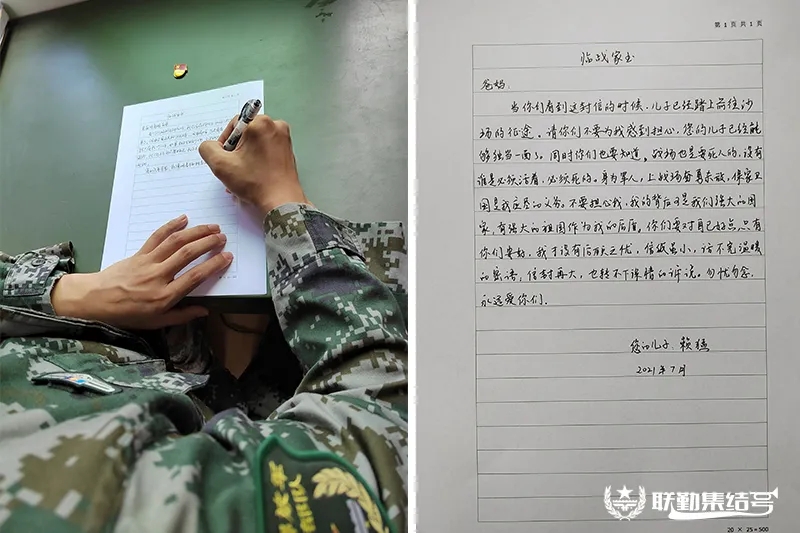 第 1 页 共 1 页
临战家书
爸妈:
当你们看到这封信的时候,儿子已经踏上前往沙
场的征途。请你们不要为我感到担心,您的儿子已经能
够独当一面了。同时你们也要知道,战场也是要死人的,没有
谁是必须活着,必须死的。身为军人,上战场奋勇杀敌,保家卫
国是我应尽的义务。不要担心我,我的背后可是我们强大的国
家,有强大的祖国作为我的后盾。你们要对自己好点,只有
你们安好,我才没有后顾之忧,信纸虽小,话不完温暖
的絮语,信封再大,也转不下深情的诉说。勿忧勿念,
永远爱你们。
您的儿子:赖猛
2021年7月
联勤集结号
20 × 25=500